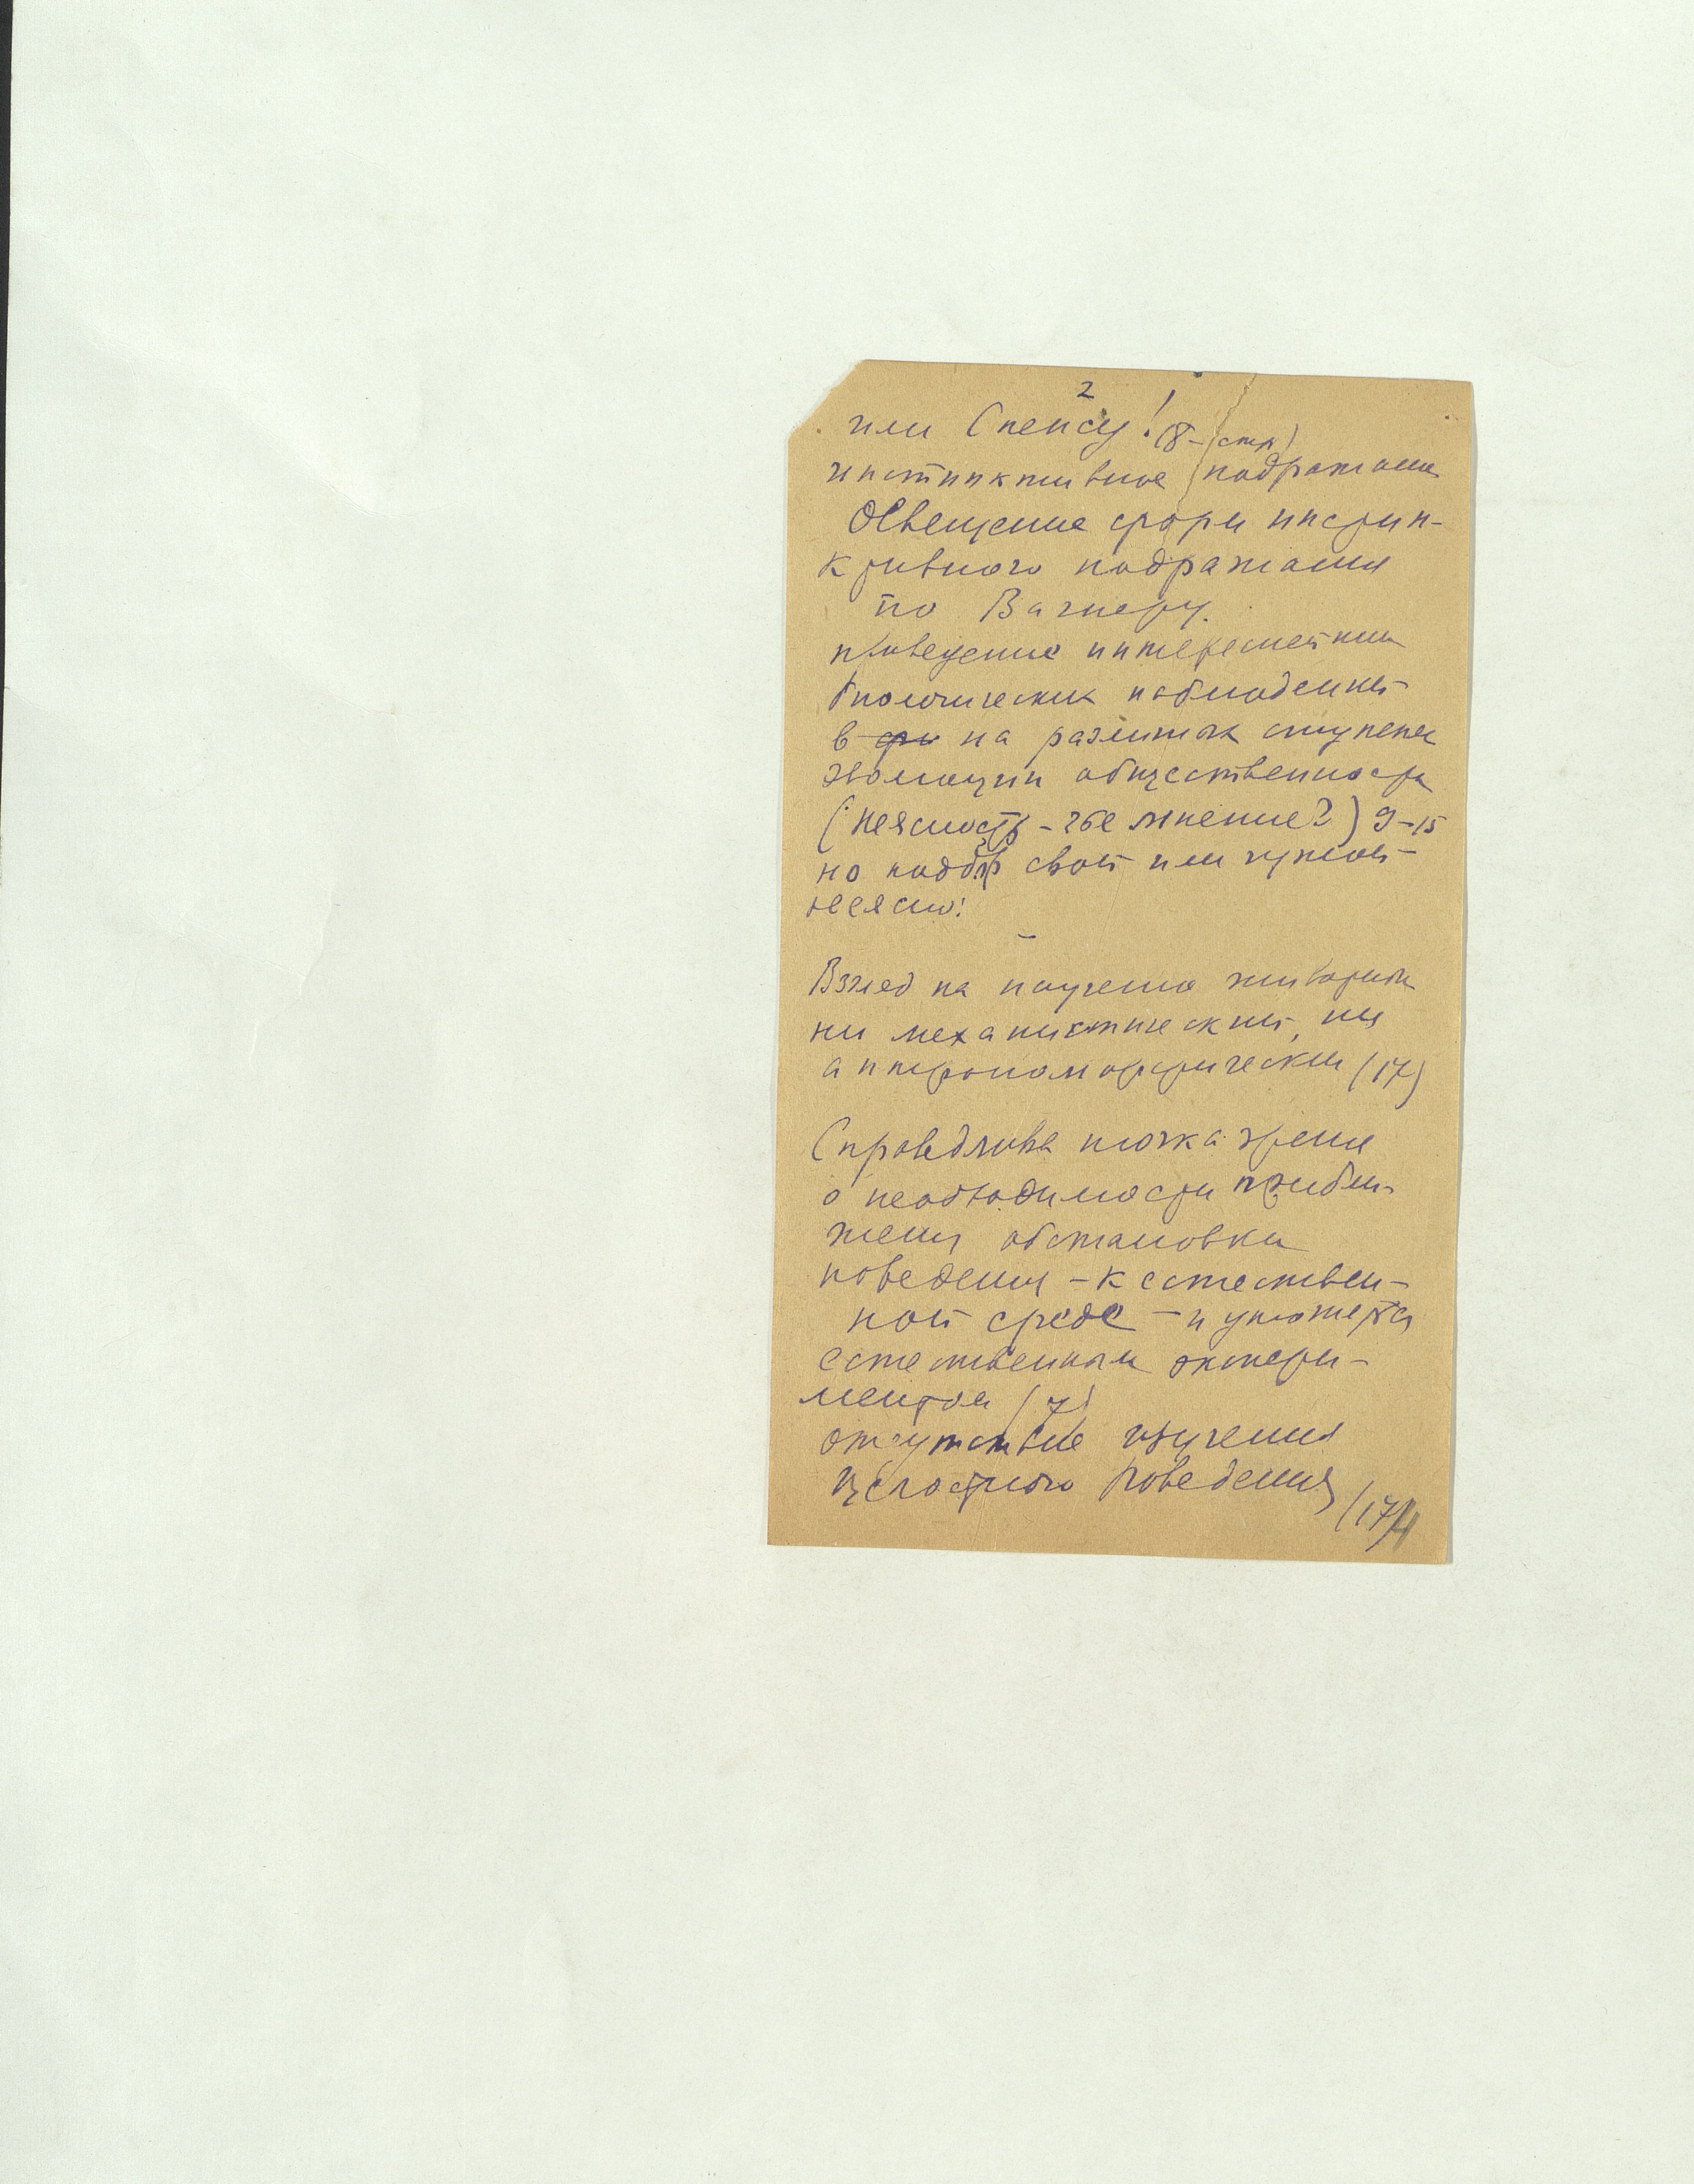 2
или Спенсу! (8-(стр)
инстинктивное подражание
Освещение форм инстин-
ктивного подражания
по Вагнеру.
приведение интереснейших
биологических наблюдений
в на различных ступенях
эволюции общественности
(неясность - чье мнение?) 9-15
но свой или чужой
неясно!
Взгляд на научение животных
ни механистический, ни
антропоморфический (17)
Справедлива точка зрения
о необходимости прибли-
жения обстановки
поведения - к естествен-
ной среде - и
естественным экспери-
ментом (7)
отсутствие изучения
целостного поведения
(17)